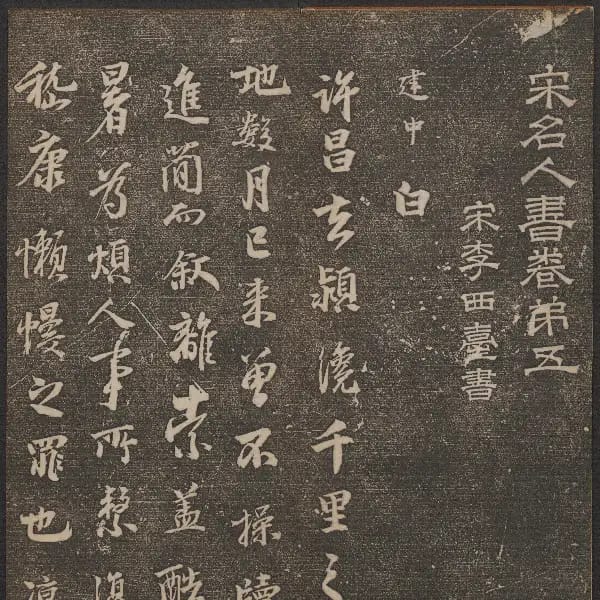 宋名人書卷第五
宋李西臺書
建中白
許昌去潁澆千里之
地數月已来曽不操牘
進簡而叙離索盖酷
暑為煩人事所繫
嵇康懶慢之罪也